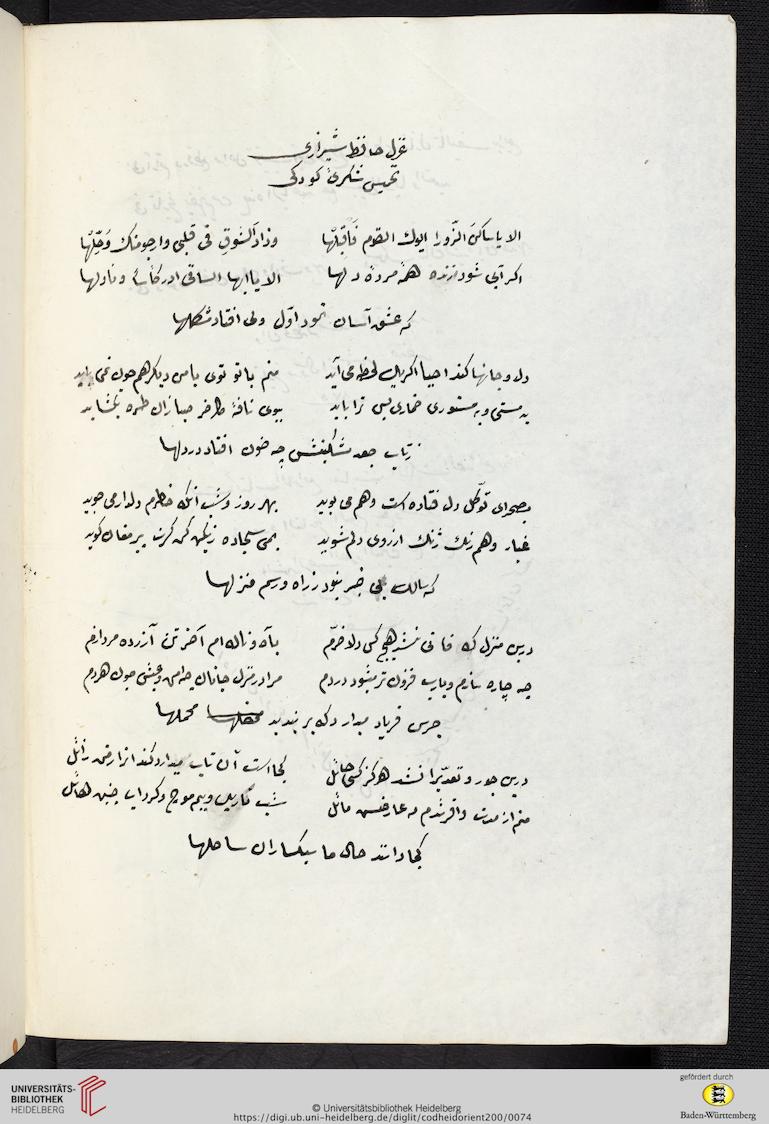 غزل حافظ شیرازی
تخمیس شکری کودکی
الا یا ساکن الزورا الیوك القوم فاقبلها وزاد الشوق فی قلبی وارجو منك وحللها
اکر آیی شود زنده همه مرده دلها الا یا ایها الساقی ادر کأسا و ناولها
که عشق آسان نمود اول ولی افتاد مشکلها
دل و جانها کند احیا اکر یك لحظه می آید منم با تو توی با من دیکر هم چون نمی باید
به مستی و به مستوری خماری بس ترا باید ببوی نافهٔ کاخر صبا زان طره بکشاید
زتاب جعد مشکینش چه خون افتاد در دلها
بصحرای توکل دل فتاده است وهم می بوید بهر روز وشب آنکه خطرم دلدار می جوید
غبار وهم زنك ژنك ازروی دلم شوید بمی سجاده رنکین کن کرت پیر مغان کوید
که سالك بی خبر نبود زراه ورسم منزلها
درین منزل که فانی نشد هیچ کس دلا خرم بآه و ناله ام آخر تن آزرده مردانم
چه چاره سازم ویارب فزون تر میشود دردم مرا در منزل جانان چه امن وعیشی چون هردم
جرس فریاد میدارد که بر بندید محملها
درین جور و تعدیرا نشد هرکز کسی حائل کجا است آن تاب میدارد کند انرا زمن زائل
منم از مدت وافر شدم به عارضش مائل شب تاریك وبیم موج وکرداب چنین هائل
کجا دانند حال ما سبکساران ساحلها
UNIVERSITÄTS-
BIBLIOTHEK
HEIDELBERG
© Universitätsbibliothek Heidelberg
https://digi.ub.uni-heidelberg.de/diglit/codheidorient200/0074
gefördert durch
Baden-Württemberg